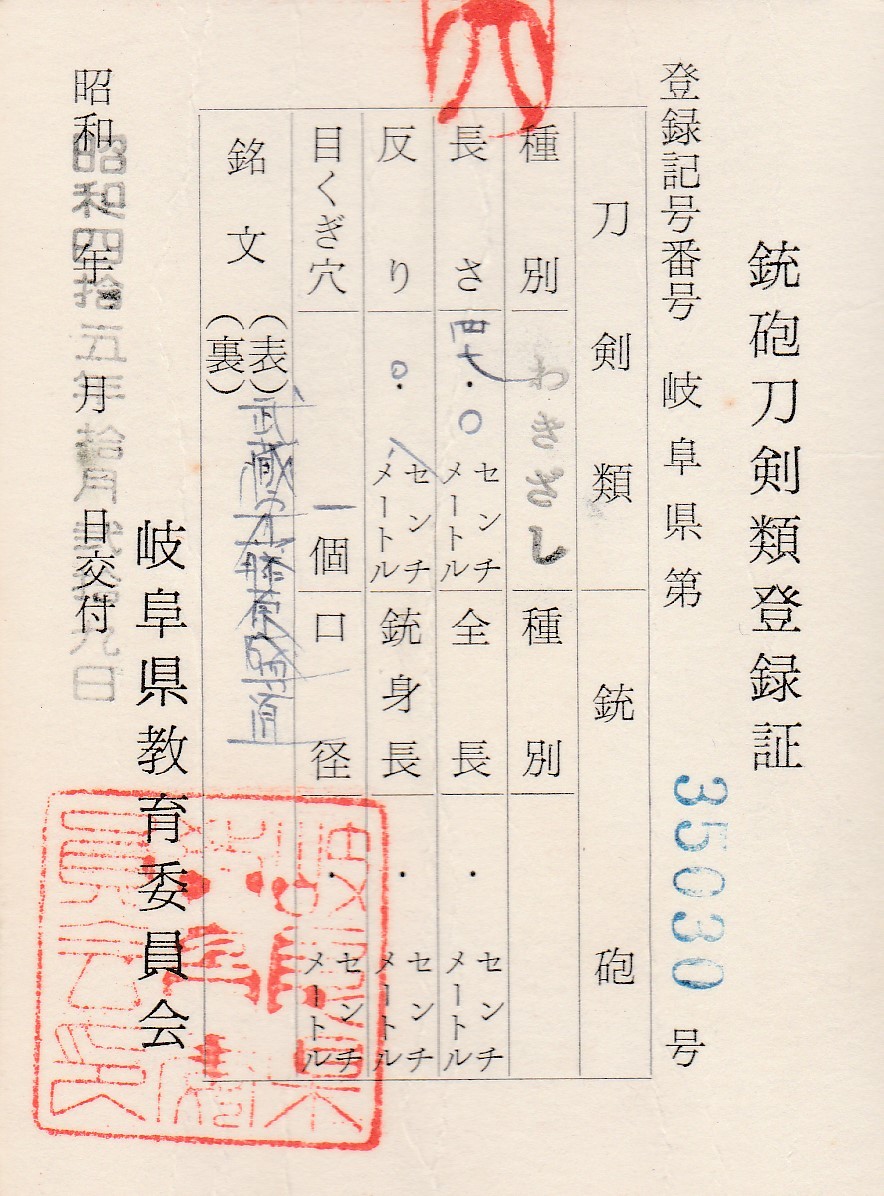 銃砲刀剣類登録証
登録記号番号 岐阜県第 35030 号
刀剣類 銃砲
種別 わきざし 種別
長さ 四七・〇 センチメートル 全長 ・ センチメートル
反り 〇・八 センチメートル 銃身長 ・ センチメートル
目くぎ穴 一個 口径 ・ センチメートル
銘文 (表) 武蔵守藤原
(裏)
岐阜県教育委員会
昭和 年 月 日交付
昭和四拾五年拾月弐拾九日